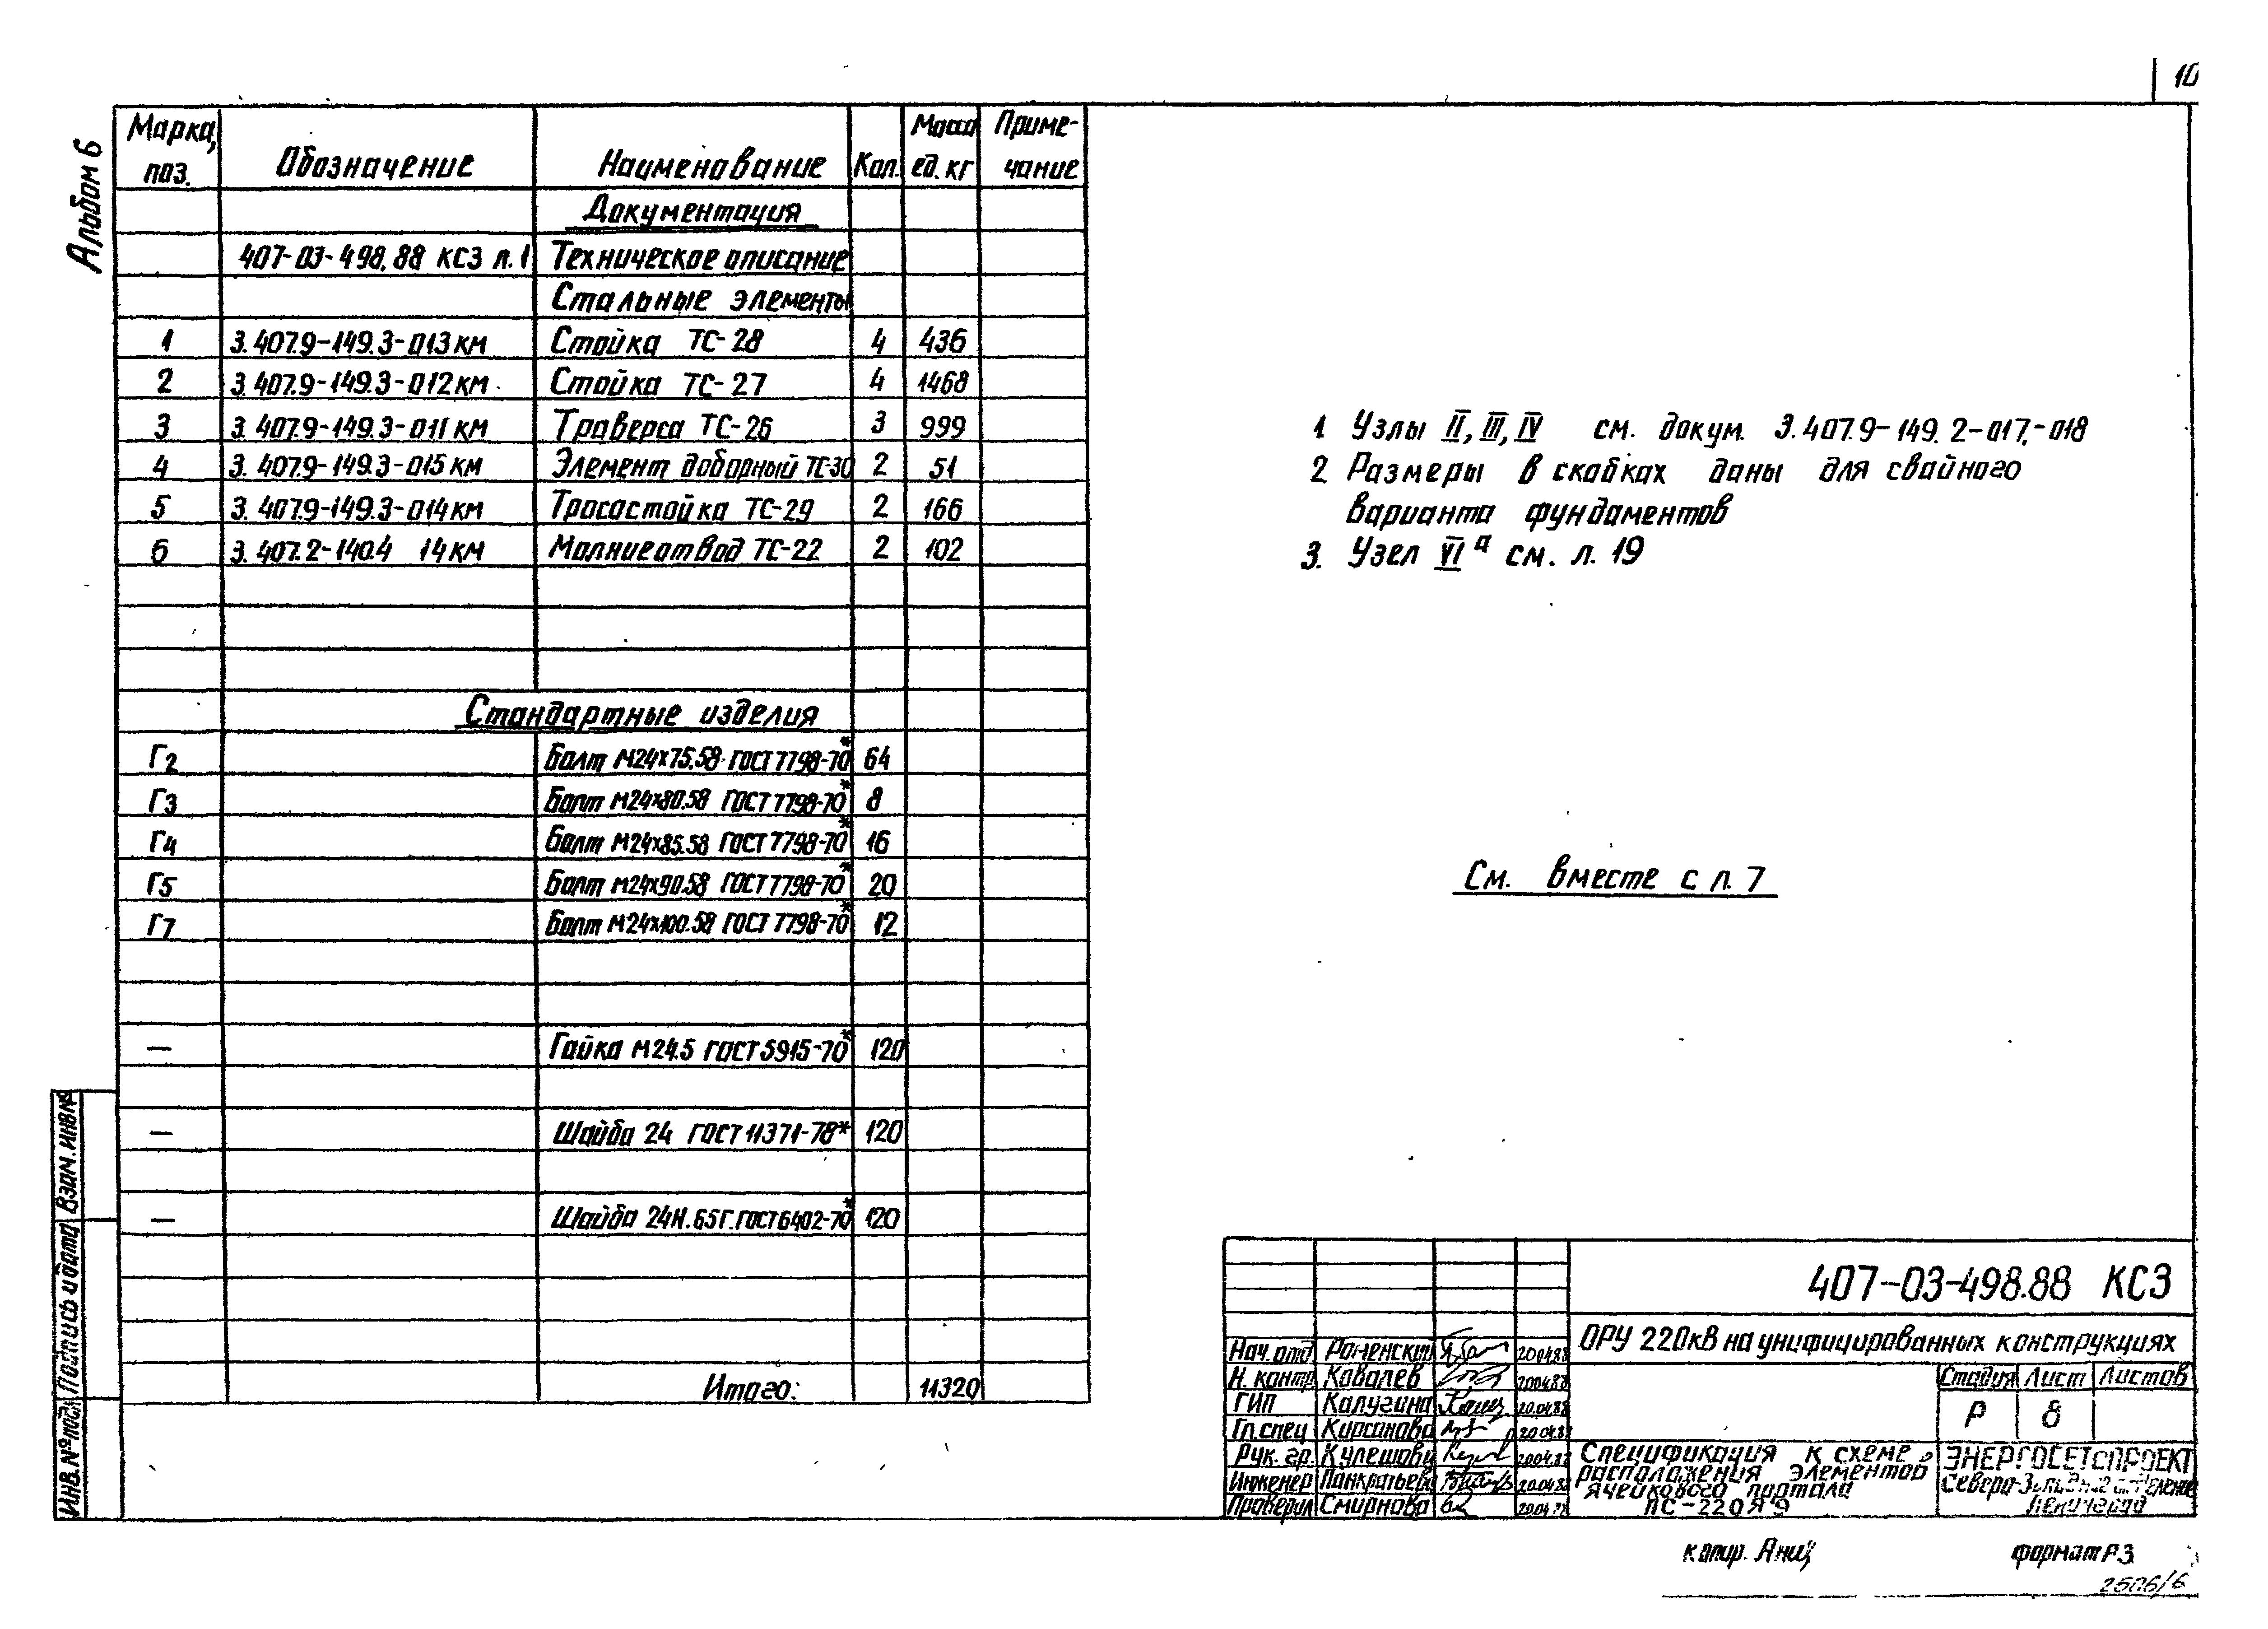 10
Альбом 6
Марка, поз. Обозначение Наименование Кол. Масса ед. кг Приме-чание
Документация
407-03-498.88 КС3 л.1 Техническое описание
Стальные элементы
1 3.407.9-149.3-013КМ Стойка ТС-28 4 436
2 3.407.9-149.3-012КМ Стойка ТС-27 4 1468
3 3.407.9-149.3-011КМ Траверса ТС-26 3 999
4 3.407.9-149.3-015КМ Элемент доборный ТС-30 2 51
5 3.407.9-149.3-014КМ Тросостойка ТС-29 2 166
6 3.407.2-140.4 14КМ Молниеотвод ТС-22 2 102
Стандартные изделия
Г2 Болт М24х75.58 ГОСТ 7798-70* 64
Г3 Болт М24х80.58 ГОСТ 7798-70* 8
Г4 Болт М24х85.58 ГОСТ 7798-70* 16
Г5 Болт М24х90.58 ГОСТ 7798-70* 20
Г7 Болт М24х100.58 ГОСТ 7798-70* 12
— Гайка М24.5 ГОСТ 5915-70* 120
— Шайба 24 ГОСТ 11371-78* 120
— Шайба 24Н.65Г.ГОСТ 6402-70* 120
Итого: 11320
1. Узлы II, III, IV см. докум. 3.407.9-149.2-017,-018
2. Размеры в скобках даны для свайного
варианта фундаментов
3. Узел VIа см. л. 19
См. вместе с л. 7
Инв. № подл. Подпись и дата Взам. инв. №
407-03-498.88 КС3
ОРУ 220кВ на унифицированных конструкциях
Нач. отд Роменский 20.04.88
Н. контр Ковалев 20.04.88
ГИП Калугина 20.04.88
Гл. спец Кирсанова 20.04.88
Рук. гр. Кулешова 20.04.88
Инженер Панкратьева 20.04.88
Проверил Смирнова 20.04.88
Стадия Лист Листов
Р 8
Спецификация к схеме
расположения элементов
ячейкового портала
ПС-220Я9
ЭНЕРГОСЕТЬПРОЕКТ
Северо-Западное отделение
Ленинград
копир. формат А3
2506/6